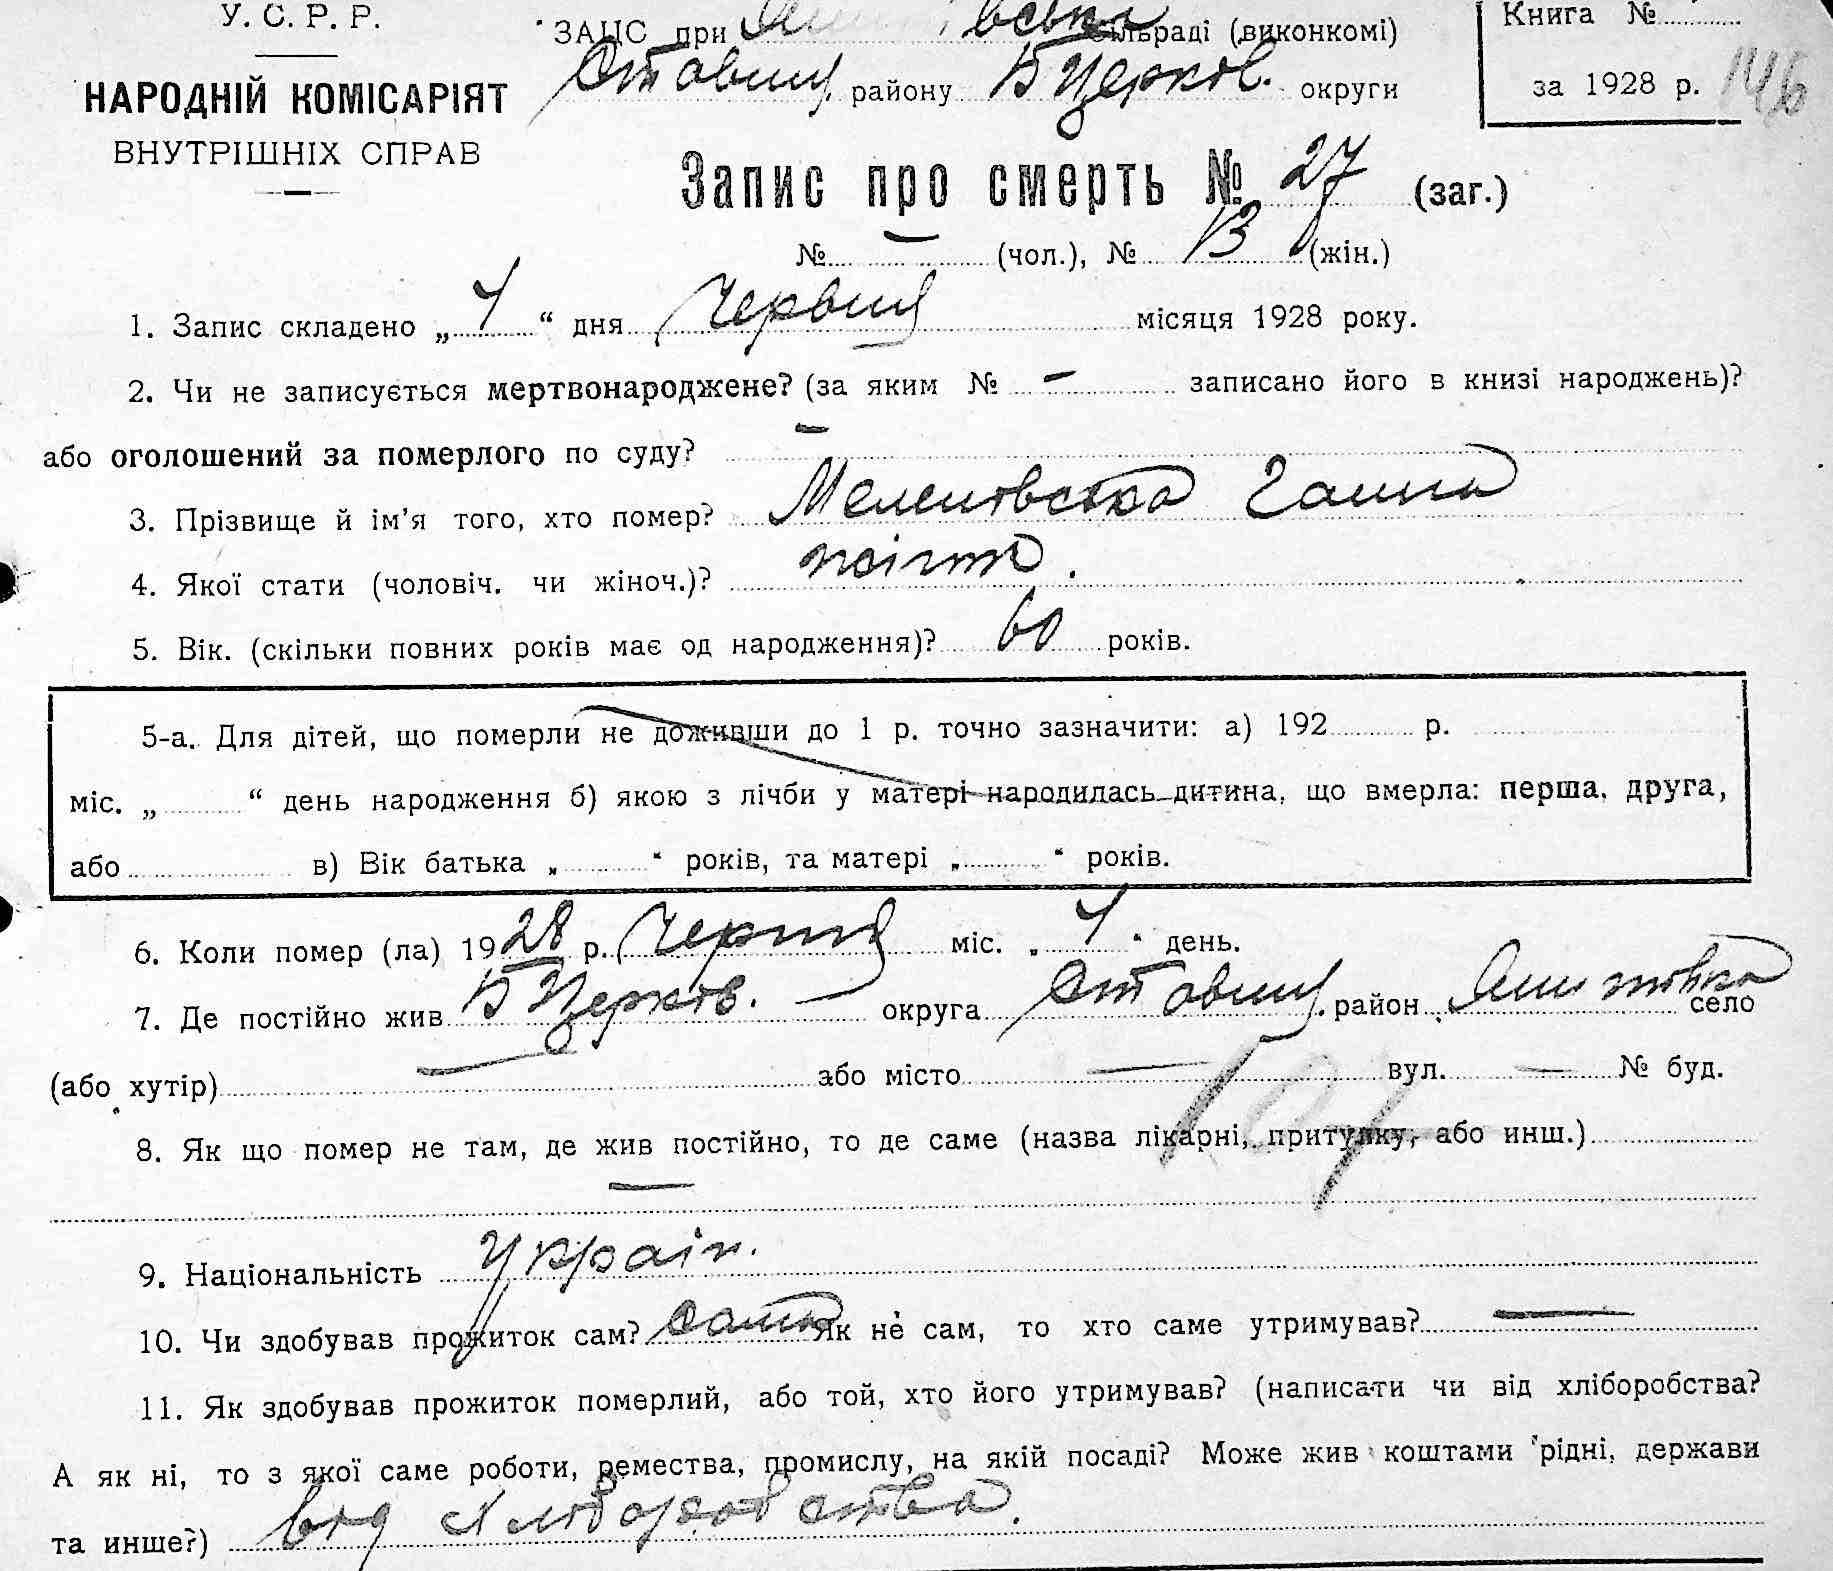 У. С. Р. Р.
НАРОДНІЙ КОМІСАРІЯТ
ВНУТРІШНІХ СПРАВ
ЗАЦС при сільраді (виконкомі)
Ставищ. району БЦерков. округи
Книга №
за 1928 р. 146
Запис про смерть № 27 (заг.)
№ — (чол.), № 13 (жін.)
1. Запис складено „ “ дня Червня місяця 1928 року.
2. Чи не записується мертвонароджене? (за яким № — записано його в книзі народжень)?
або оголошений за померлого по суду? —
3. Прізвище й ім'я того, хто помер? Ганна
4. Якої стати (чоловіч. чи жіноч.)?
5. Вік. (скільки повних років має од народження)? 60 років.
5-а. Для дітей, що померли не доживши до 1 р. точно зазначити: а) 192 р.
міс. „ “ день народження б) якою з лічби у матері народилась дитина, що вмерла: перша, друга,
або в) Вік батька „ “ років, та матері „ “ років.
6. Коли помер (ла) 1928 р. Червня міс. „ “ день.
7. Де постійно жив БЦерков. округа Ставищ. район село
(або хутір) — або місто — вул. — № буд.
8. Як що помер не там, де жив постійно, то де саме (назва лікарні, притулку, або инш.)
—
9. Національність Україн.
10. Чи здобував прожиток сам? сама Як не сам, то хто саме утримував? —
11. Як здобував прожиток померлий, або той, хто його утримував? (написати чи від хліборобства?
А як ні, то з якої саме роботи, ремества, промислу, на якій посаді? Може жив коштами рідні, держави
та инше?) від хліборобства.